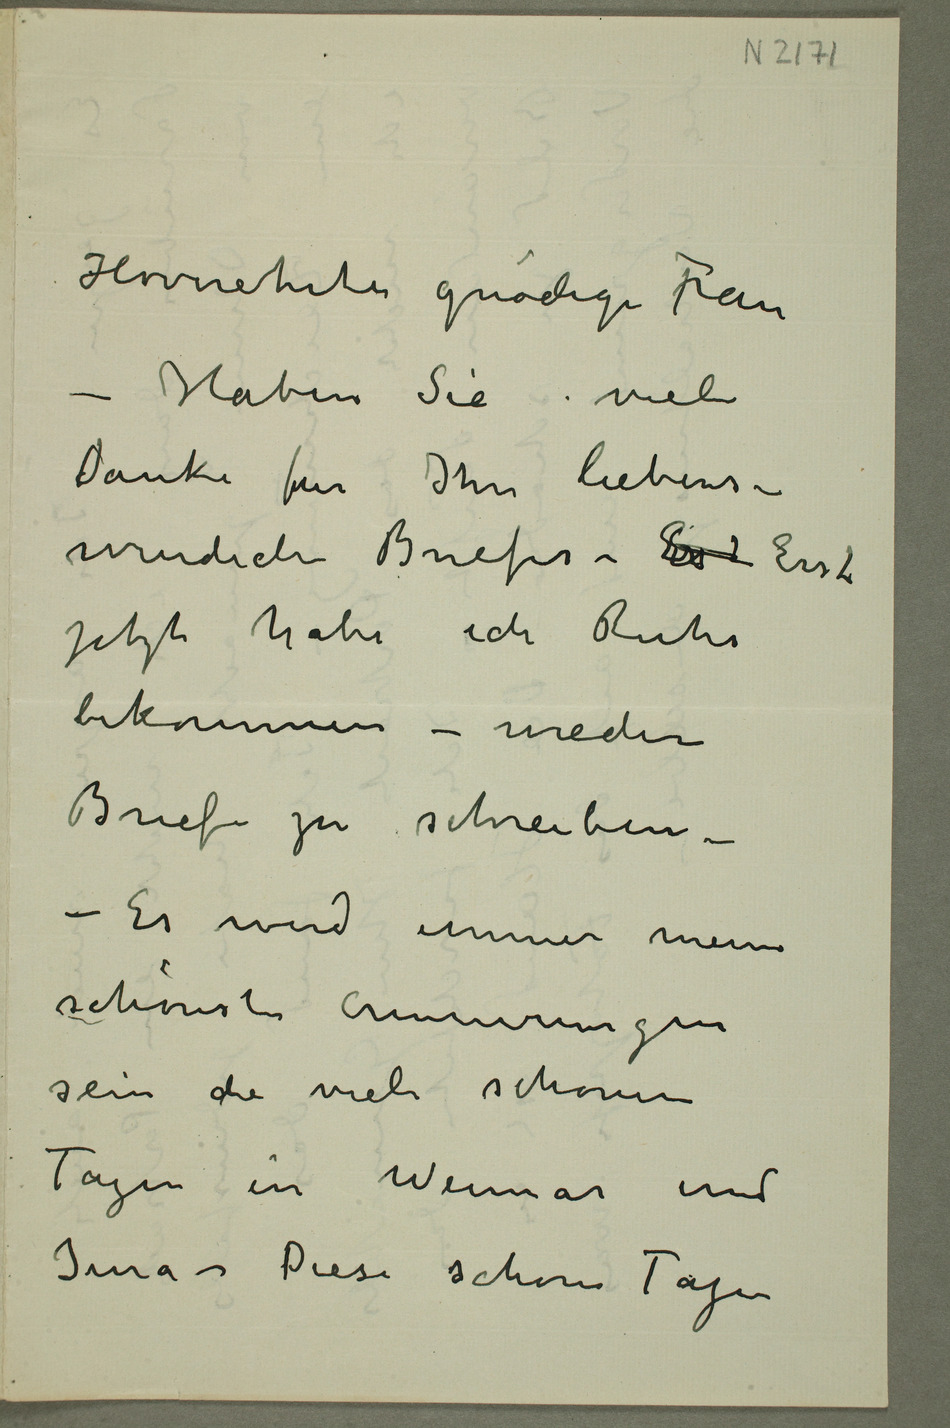 N 2171
Hovverehrte gnädige Frau
– Haben Sie viele
Danke für Ihre liebens–
wurdiche Briefes – Erst Erst
jetzt habe ich Ruhe
bekommen – wieder
Briefe zu schreiben –
– Es wird immer meine
schönste Erinnerungen
sein die viele schönen
Tagen in Weimar und
Jena – Diese schöne Tage